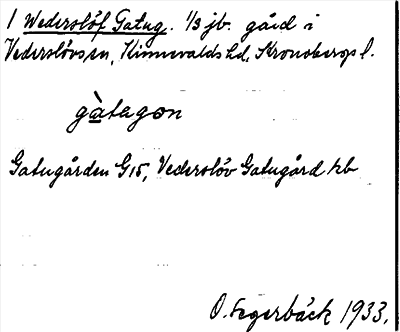 1 Wederslöf Gatug. 1/3 jb. gård i
Vederslövs sn, Kinnevalds hd, Kronobergs l.
gàtagon
Gatugården G15, Vederslöv Gatugård kb
O. Fegerbäck 1933.